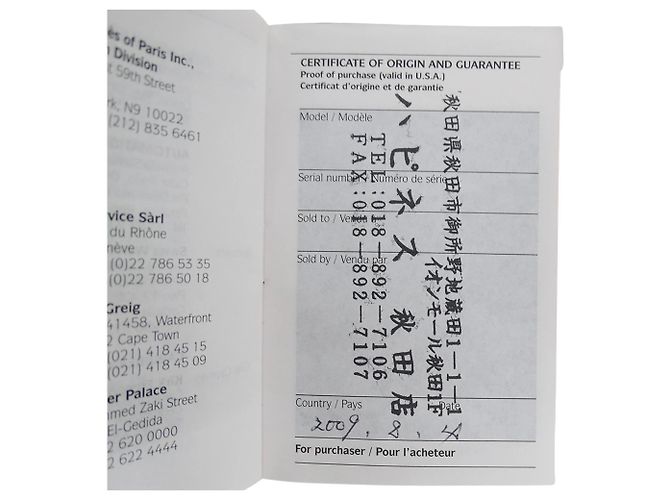 es of Paris Inc.,
n Division
t 59th Street
rk, N9 10022
(212) 835 6461
vice Sàrl
du Rhône
nève
(0)22 786 53 35
(0)22 786 50 18
Greig
41458, Waterfront
2 Cape Town
(021) 418 45 15
(021) 418 45 09
er Palace
med Zaki Street
El-Gedida
2 620 0000
2 622 4444
CERTIFICATE OF ORIGIN AND GUARANTEE
Proof of purchase (valid in U.S.A.)
Certificat d'origine et de garantie
Model / Modèle
Serial number / Numéro de série
Sold to / Vendu à
Sold by / Vendu par
Country / Pays
Date
秋田県秋田市御所野地蔵田1－1－1
イオンモール秋田1F
ハピネス 秋田店
TEL:018－892－7106
FAX:018－892－7107
2009. 8. 4
For purchaser / Pour l'acheteur